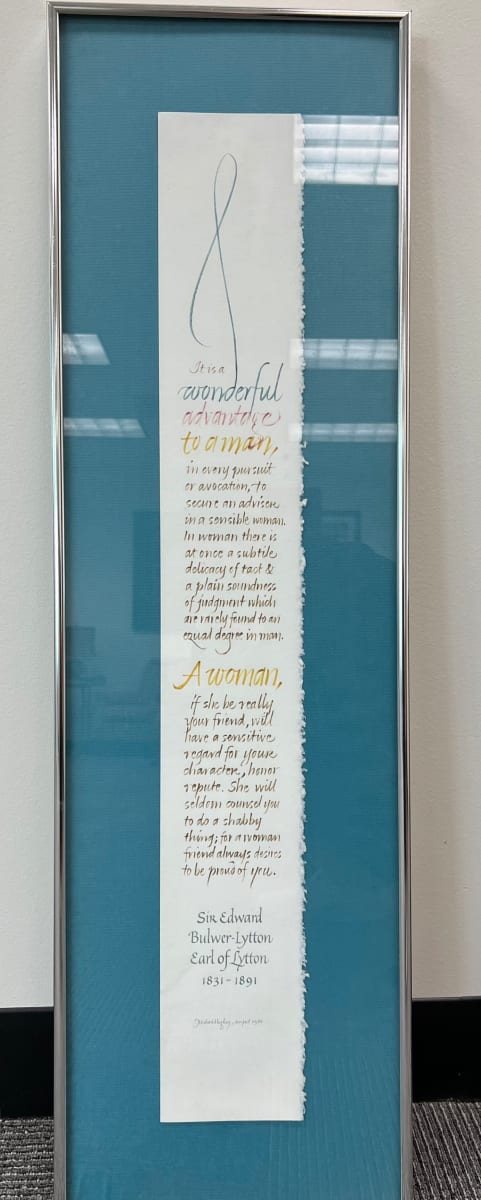 It is a
wonderful
advantage
to a man,
in every pursuit
or avocation, to
secure an adviser
in a sensible woman.
In woman there is
at once a subtile
delicacy of tact &
a plain soundness
of judgment which
are rarely found to an
equal degree in man.
A woman,
if she be really
your friend, will
have a sensitive
regard for your
character, honor
repute. She will
seldom counsel you
to do a shabby
thing; for a woman
friend always desires
to be proud of you.
Sir Edward
Bulwer-Lytton
Earl of Lytton
1831-1891